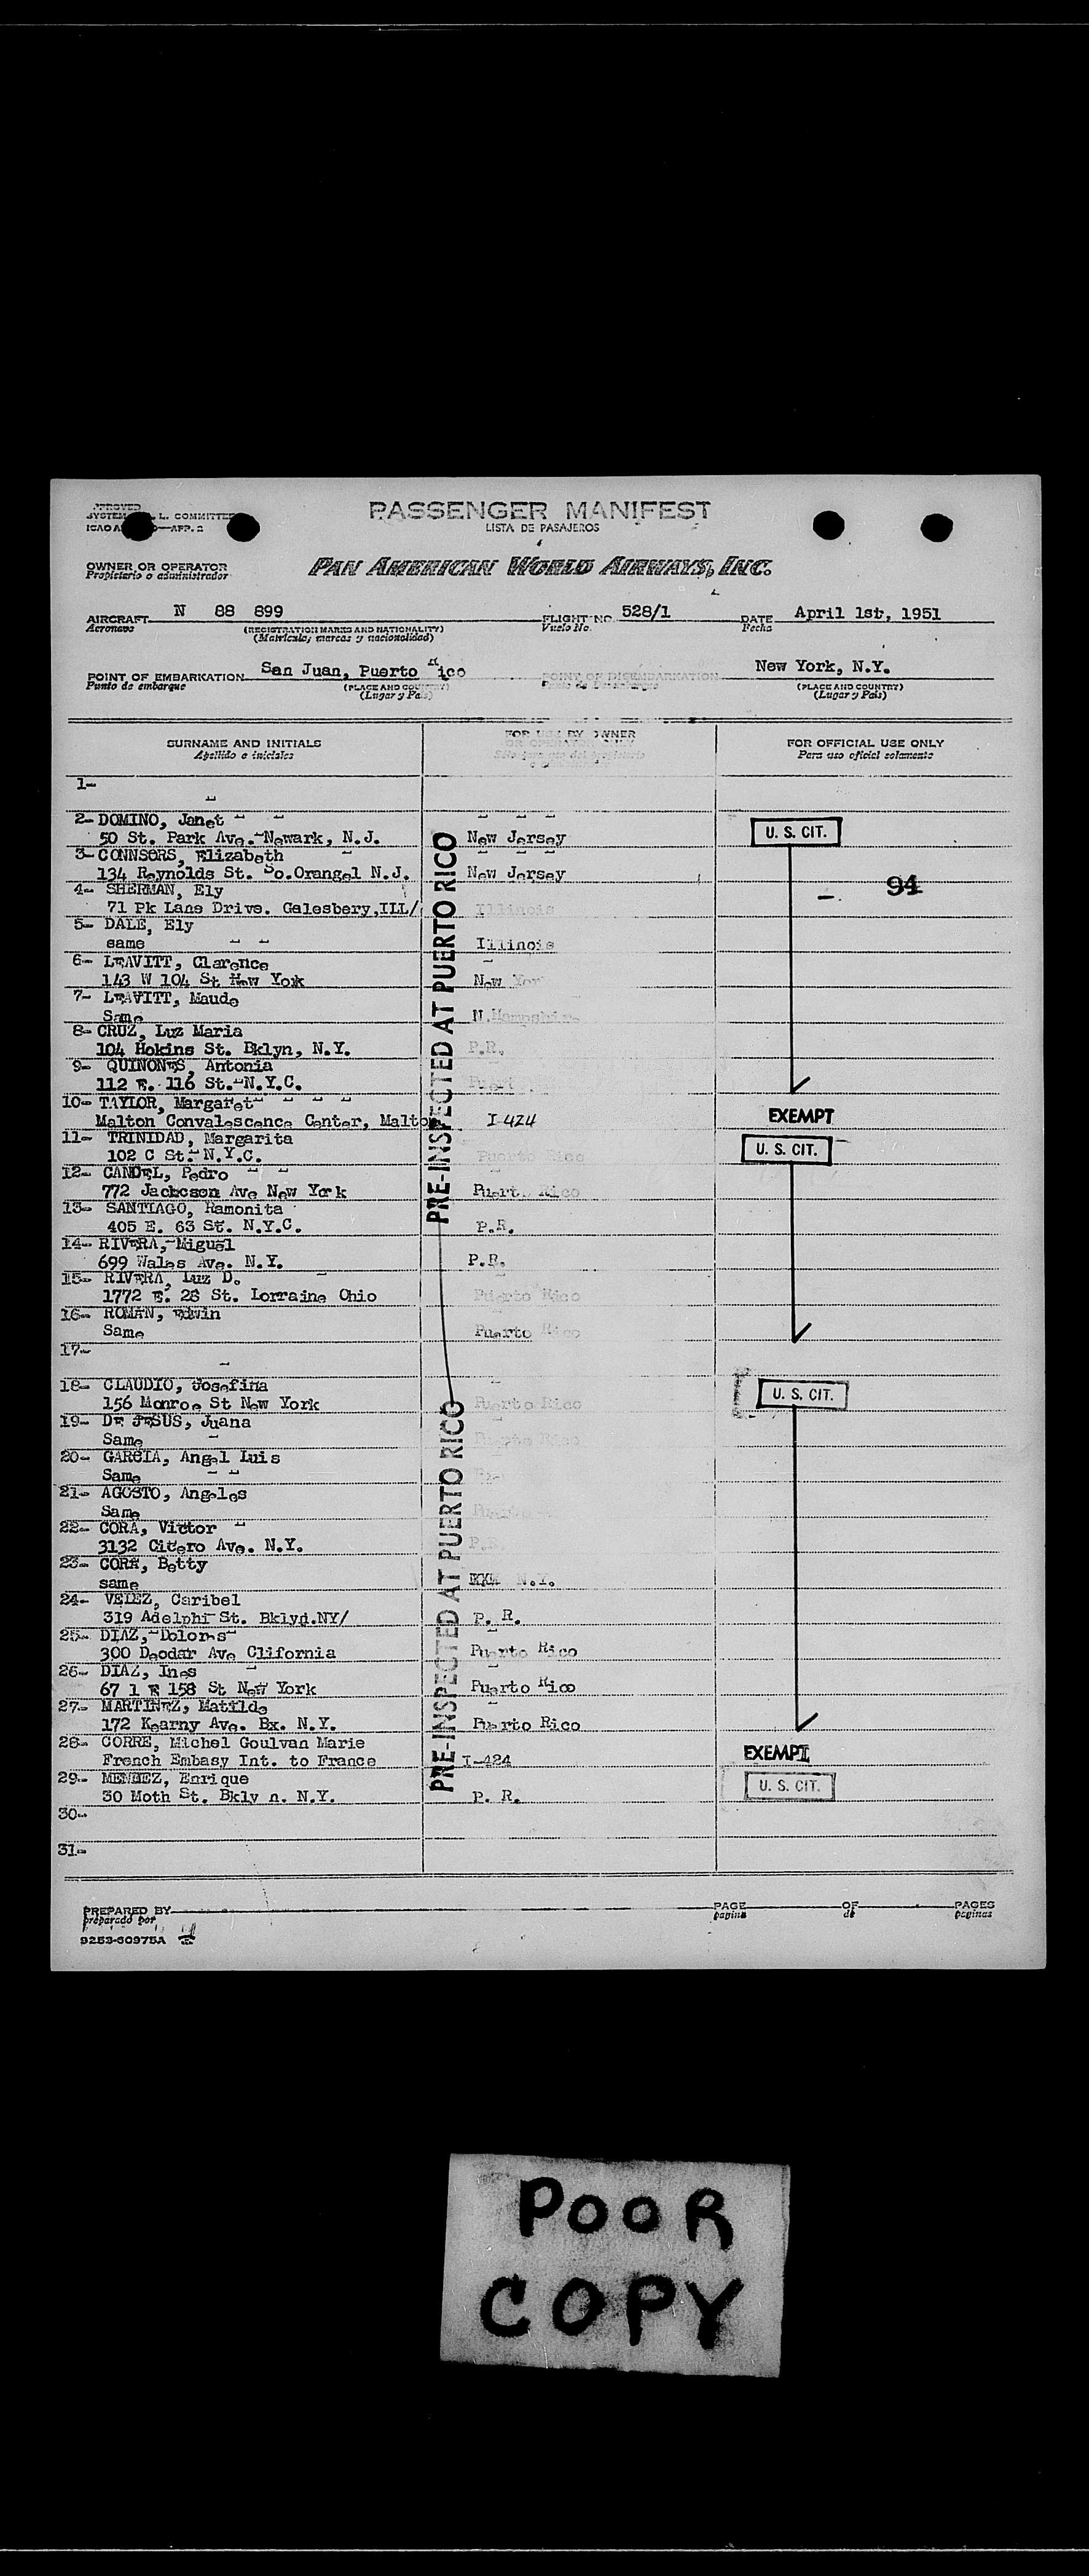 PASSENGER MANIFEST
LISTA DE PASAJEROS
L. COMMITTEE
APP. 2
OWNER OR OPERATOR
Propietario o administrador
PAN AMERICAN WORLD AIRWAYS, INC.
AIRCRAFT N 88 899 FLIGHT NO. 528/1 DATE April 1st, 1951
Aeronave (REGISTRATION MARKS AND NATIONALITY) Vuelo No. Fecha
(Matrícula, marcas y nacionalidad)
POINT OF EMBARKATION San Juan, Puerto Rico POINT OF DISEMBARKATION New York, N.Y.
Punto de embarque (PLACE AND COUNTRY) (PLACE AND COUNTRY)
(Lugar y País) (Lugar y País)
SURNAME AND INITIALS FOR USE BY OWNER OR OPERATOR ONLY FOR OFFICIAL USE ONLY
Apellido e iniciales Para uso oficial solamente
1-
2- DOMINO, Janet
50 St. Park Ave. Newark, N.J. New Jersey U. S. CIT.
3- CONNSORS, Elizabeth
134 Reynolds St. So.Orangel N.J. New Jersey
4- SHERMAN, Ely 94
71 Pk Lane Drive. Galesbery,ILL/ Illinois
5- DALE, Ely
same Illinois
6- LEAVITT, Clarence
143 W 104 St New York New Yor
7- LEAVITT, Maude
Same N.Hampshire
8- CRUZ, Luz Maria
104 Hokins St. Bklyn, N.Y. P.R.
9- QUINONES, Antonia
112 E. 116 St. N.Y.C. Puert
10- TAYLOR, Margaret EXEMPT
Malton Convalescence Center, Malton I-424
11- TRINIDAD, Margarita U. S. CIT.
102 C St. N.Y.C. Puerto Rico
12- CANDEL, Pedro
772 Jackcson Ave New York Puerto Rico
13- SANTIAGO, Ramonita
405 E. 63 St. N.Y.C. P.R.
14- RIVERA, Miguel
699 Wales Ave. N.Y. P.R.
15- RIVERA, Luz D.
1772 E. 28 St. Lorraine Ohio Puerto Rico
16- ROMAN, Edwin
Same Puerto Rico
17-
18- CLAUDIO, Josefina U. S. CIT.
156 Monroe St New York Puerto Rico
19- DE JESUS, Juana
Same Puerto Rico
20- GARCIA, Angel Luis
Same
21- AGOSTO, Angeles
Same
22- CORA, Victor
3132 Citero Ave. N.Y. P.R.
23- CORA, Betty
same N.Y.
24- VELEZ, Caribel
319 Adelphi St. Bklyd.NY/ P. R.
25- DIAZ, Dolores
300 Deodar Ave Clifornia Puerto Rico
26- DIAZ, Ines
67 1 E 158 St New York Puerto Rico
27- MARTINEZ, Matilde
172 Kearny Ave. Bx. N.Y. Puerto Rico
28- CORRE, Michel Goulvan Marie EXEMPT
French Embasy Int. to France I-424
29- MENDEZ, Enrique U. S. CIT.
30 Moth St. Bkly n. N.Y. P. R.
30-
31-
PRE-INSPECTED AT PUERTO RICO
PRE-INSPECTED AT PUERTO RICO
PREPARED BY PAGE OF PAGES
preparado por pagina de paginas
9253-60975A
POOR
COPY